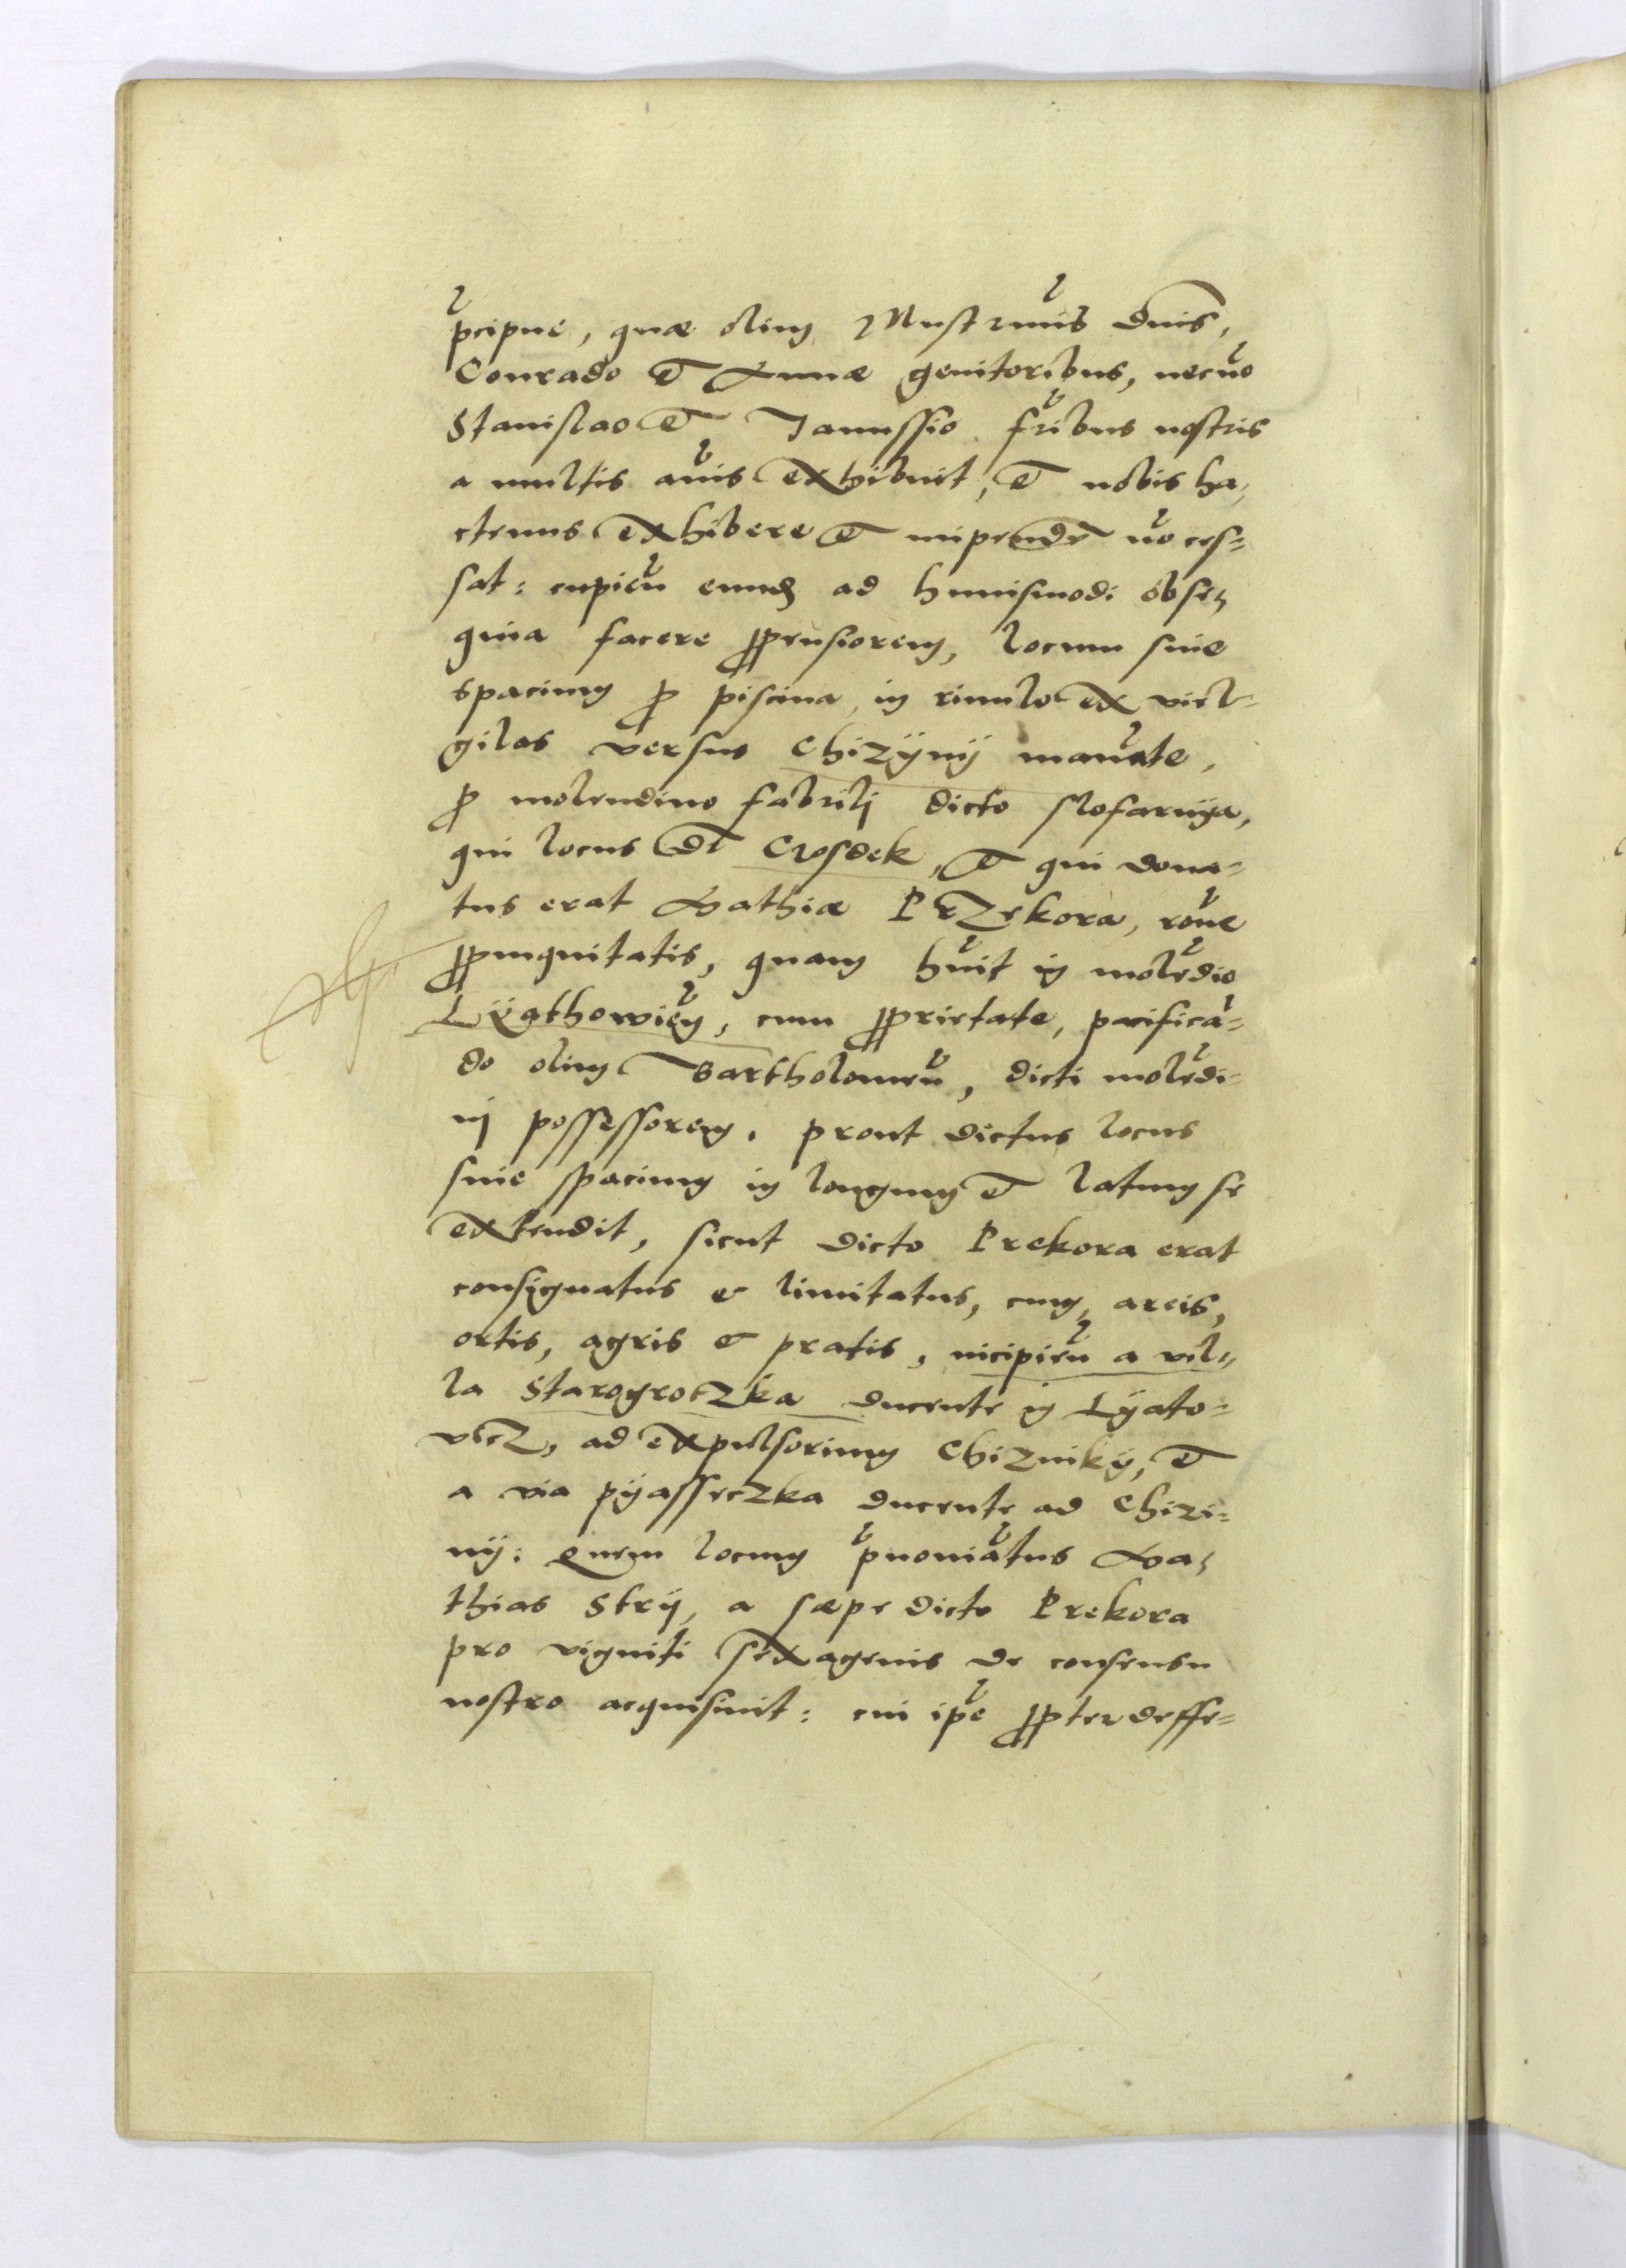 p̃cipue, quæ olim Illustrimis̃ Dnis̃,
Conrado et Annæ genitoribus, necño
Stanislao et Janussio fr̃ibus nostris
a multis añis exhibuit, et nobis ha,
ctenus exhibere et impendẽ ño ces=
sat: cupieñ eund ad huiusmodi obse,
quia facere ꝓpensiorem, locum siue
spacium ꝓ piscina, in riuulo ex viel-
gilas versus Chizÿnÿ mañate,
ꝓ molendino fabrili dicto slofarnÿa,
qui locus dt̃ Crosdek, et qui dona-
tus erat Mathiæ PrZekora, roñe
ꝓpinquitatis, quam hũit in molẽdio
Lÿathowieñ, cum ꝓprietate, pacificã-
do olim Bartholomeũ, dicti molẽdi-
nj possessorem. prout dictus locus
siue spacium in longum et latum se
extendit, sicut dicto Prekora erat
consignatus et limitatus, cum, areis,
ortis, agris et pratis, incipieñ a vil-
la StarogroczKa ducente in Lÿato-
viecz, ad expulsorium Chizniky, et
a via pÿasseczka ducente ad Chizi-
nÿ: Quem locum p̃noniãtus Ma,
thias Strÿ, a sæpe dicto Prekora
pro viginti sexagenis de consensu
nostro acquisiuit: cui ip̃e ꝓpter deffe-